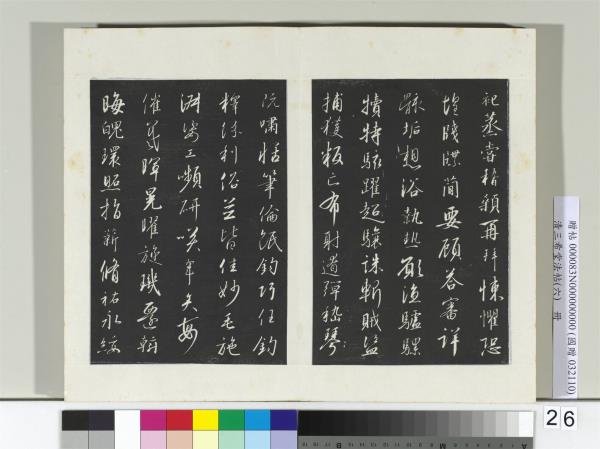 祀蒸嘗稽顙再拜悚懼恐
惶牋牒簡要顧答審詳
骸垢想浴執熱願涼驢騾
犢特駭躍超驤誅斬賊盜
捕獲叛亡布射遼彈嵇琴
阮嘯恬筆倫紙鈞巧任釣
釋紛利俗並皆佳妙毛施
淑姿工嚬妍笑年矢每
催羲暉晃曜旋璣懸斡
晦魄環照指薪脩祜永綏
贈帖 000083N000000000 (國贈 032110)
清三希堂法帖(六) 冊
26